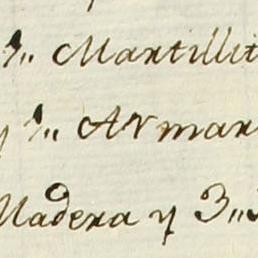 Martillit
y 1„ Armar
Madera y 3„